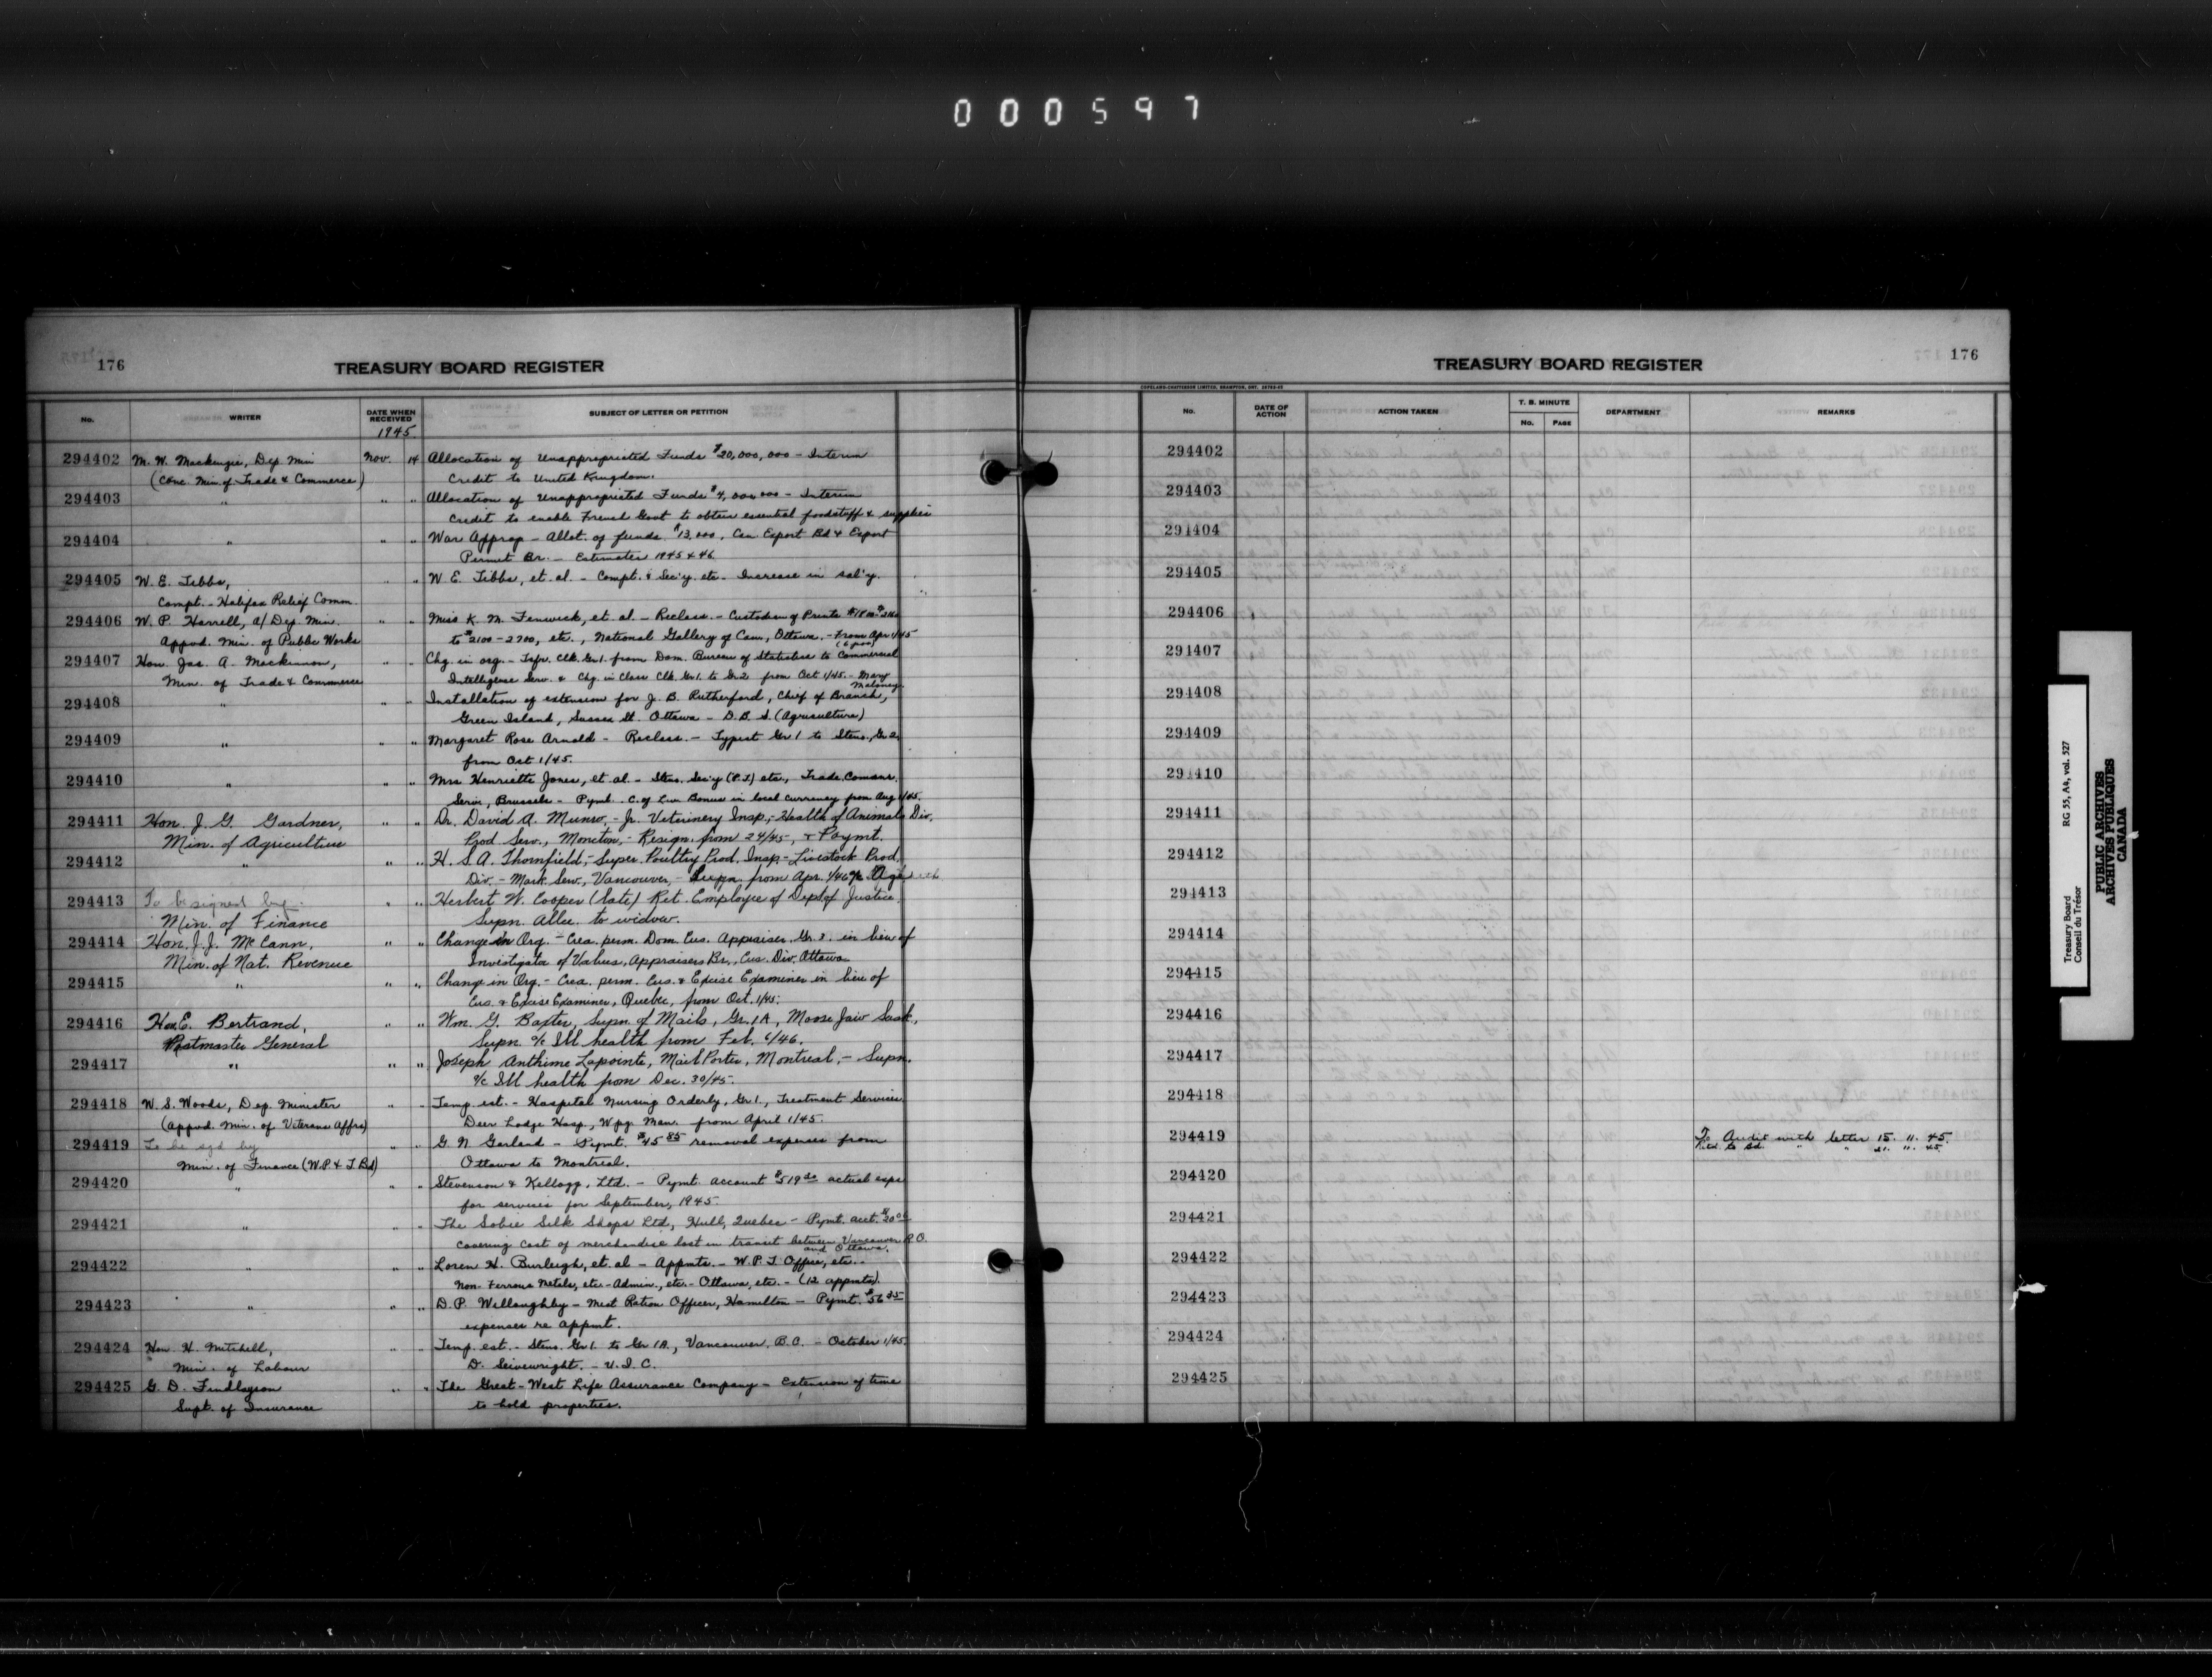 000597
176
TREASURY BOARD REGISTER
No. WRITER DATE WHEN RECEIVED SUBJECT OF LETTER OR PETITION
1945
294402 M. W. Mackenzie, Dep. Min Nov. 14 Allocation of Unappropriated Funds $20,000,000 - Interim
(Conc. Min. of Trade & Commerce) Credit to United Kingdom.
294403 " " " Allocation of Unappropriated Funds $4,000,000 - Interim
Credit to enable French Govt to obtain essential foodstuff & supplies
294404 " " " War Approp - Allot. of funds $13,000, Can Export Bd & Export
Permit Br. - Estimates 1945 & 46
294405 W. E. Tibbs, " " W. E. Tibbs, et. al. - Compt. & Sec'y. etc. Increase in sal'y.
Compt. - Halifax Relief Comm.
294406 W. P. Harrell, a/Dep. Min. " " Miss K. M. Fenwick, et. al. - Reclass. - Custodian of Prints
Appvd. Min. of Public Works to $2100-2700, etc., National Gallery of Can., Ottawa. - From Apr 1/45
294407 Hon. Jas. A. Mackinnon, " " Chg. in org. - Tsfr. Clk. Gr.1. from Dom. Bureau of Statistics to Commercial
Min. of Trade & Commerce Intelligence Serv. & Chg. in Class Clk. Gr.1. to Gr.2 from Oct 1/45. - Mary
Maloney
294408 " " " Installation of extension for J. B. Rutherford, Chief of Branch,
Green Island, Sussex St. Ottawa - D. B. S. (Agriculture)
294409 " " " Margaret Rose Arnold - Reclass. - Typist Gr 1 to Steno., Gr 2,
from Oct 1/45.
294410 " " " Mrs Henriette Jones, et. al. - Steno. Sec'y (P.T.) etc., Trade Comsnr.
Serv., Brussels - Pymt. C. of Liv. Bonus in local currency from Aug 1/45.
294411 Hon. J. G. Gardner, " " Dr. David A. Munro, - Jr. Veterinery Insp., - Health of Animals Div.
Min. of Agriculture Prod. Serv., Moncton, - Resign. from 24/45, & Paymt.
294412 " " " H. S. A. Thornfield, - Super. Poultry Prod. Insp. - Livestock Prod.
Div. - Mark. Serv., Vancouver, - Supn. from Apr. 1/46 a/c Age
294413 To be signed by " " Herbert W. Cooper (late) Ret. Employee of Dept of Justice.
Min. of Finance Supn. Allce. to widow.
294414 Hon. J. J. McCann, " " Change in Org. - Crea. perm. Dom. Cus. Appraiser, Gr. 3. in lieu of
Min. of Nat. Revenue Investigator of Values, Appraisers Br., Cus. Div. Ottawa
294415 " " " Change in Org. - Crea. perm. Cus. & Excise Examiner in lieu of
Cus. & Excise Examiner, Quebec, from Oct. 1/45.
294416 Hon. E. Bertrand, " " Wm. G. Baxter, Supn. of Mails, Gr. 1A, Moose Jaw Sask.,
Postmaster General Supn. a/c Ill health from Feb. 6/46.
294417 " " " Joseph Anthime Lapointe, Mail Porter, Montreal, - Supn.
a/c Ill health from Dec. 30/45.
294418 W. S. Woods, Dep. Minister " " Temp. est. - Hospital Nursing Orderly, Gr 1., Treatment Services
(Appvd. Min. of Veterans Affrs) Deer Lodge Hosp., Wpg. Man. from April 1/45.
294419 To be sgd by " " G. N. Garland - Pymt. $45 85 removal expenses from
Min. of Finance (W.P. & T. Bd) Ottawa to Montreal.
294420 " " " Stevenson & Kellogg, Ltd. - Pymt. account $519 20 actual exps
for services for September, 1945
294421 " " " The Sobie Silk Shops Ltd., Hull, Quebec - Pymt. acct.
covering cost of merchandise lost in transit between Vancouver B.C.
and Ottawa.
294422 " " " Loren H. Burleigh, et. al - Appmts. - W. P. T. Officer, etc. -
Non-Ferrous Metals, etc. - Admin., etc. - Ottawa, etc. - (12 appmts).
294423 " " " D. P. Willoughby - Meat Ration Officer, Hamilton - Pymt. $56 35
expenses re Appmt.
294424 Hon. H. Mitchell, " " Temp. est. - Steno. Gr 1. to Gr 1A., Vancouver, B.C. - October 1/45
Min. of Labour D. Seivewright. - U. I. C.
294425 G. D. Findlayson " " The Great-West Life Assurance Company - Extension of time
Supt. of Insurance to hold properties.
TREASURY BOARD REGISTER
176
COPELAND-CHATTERSON LIMITED, BRAMPTON, ONT.
No. DATE OF ACTION ACTION TAKEN T. B. MINUTE No. PAGE DEPARTMENT REMARKS
294402
294403
294404
294405
294406
294407
294408
294409
294410
294411
294412
294413
294414
294415
294416
294417
294418
294419 To Audit with letter 15. 11. 45.
Retd. to Bd. " " 21. 11. 45.
294420
294421
294422
294423
294424
294425
Treasury Board
Conseil du Trésor
RG 55, A4, vol. 527
PUBLIC ARCHIVES
ARCHIVES PUBLIQUES
CANADA